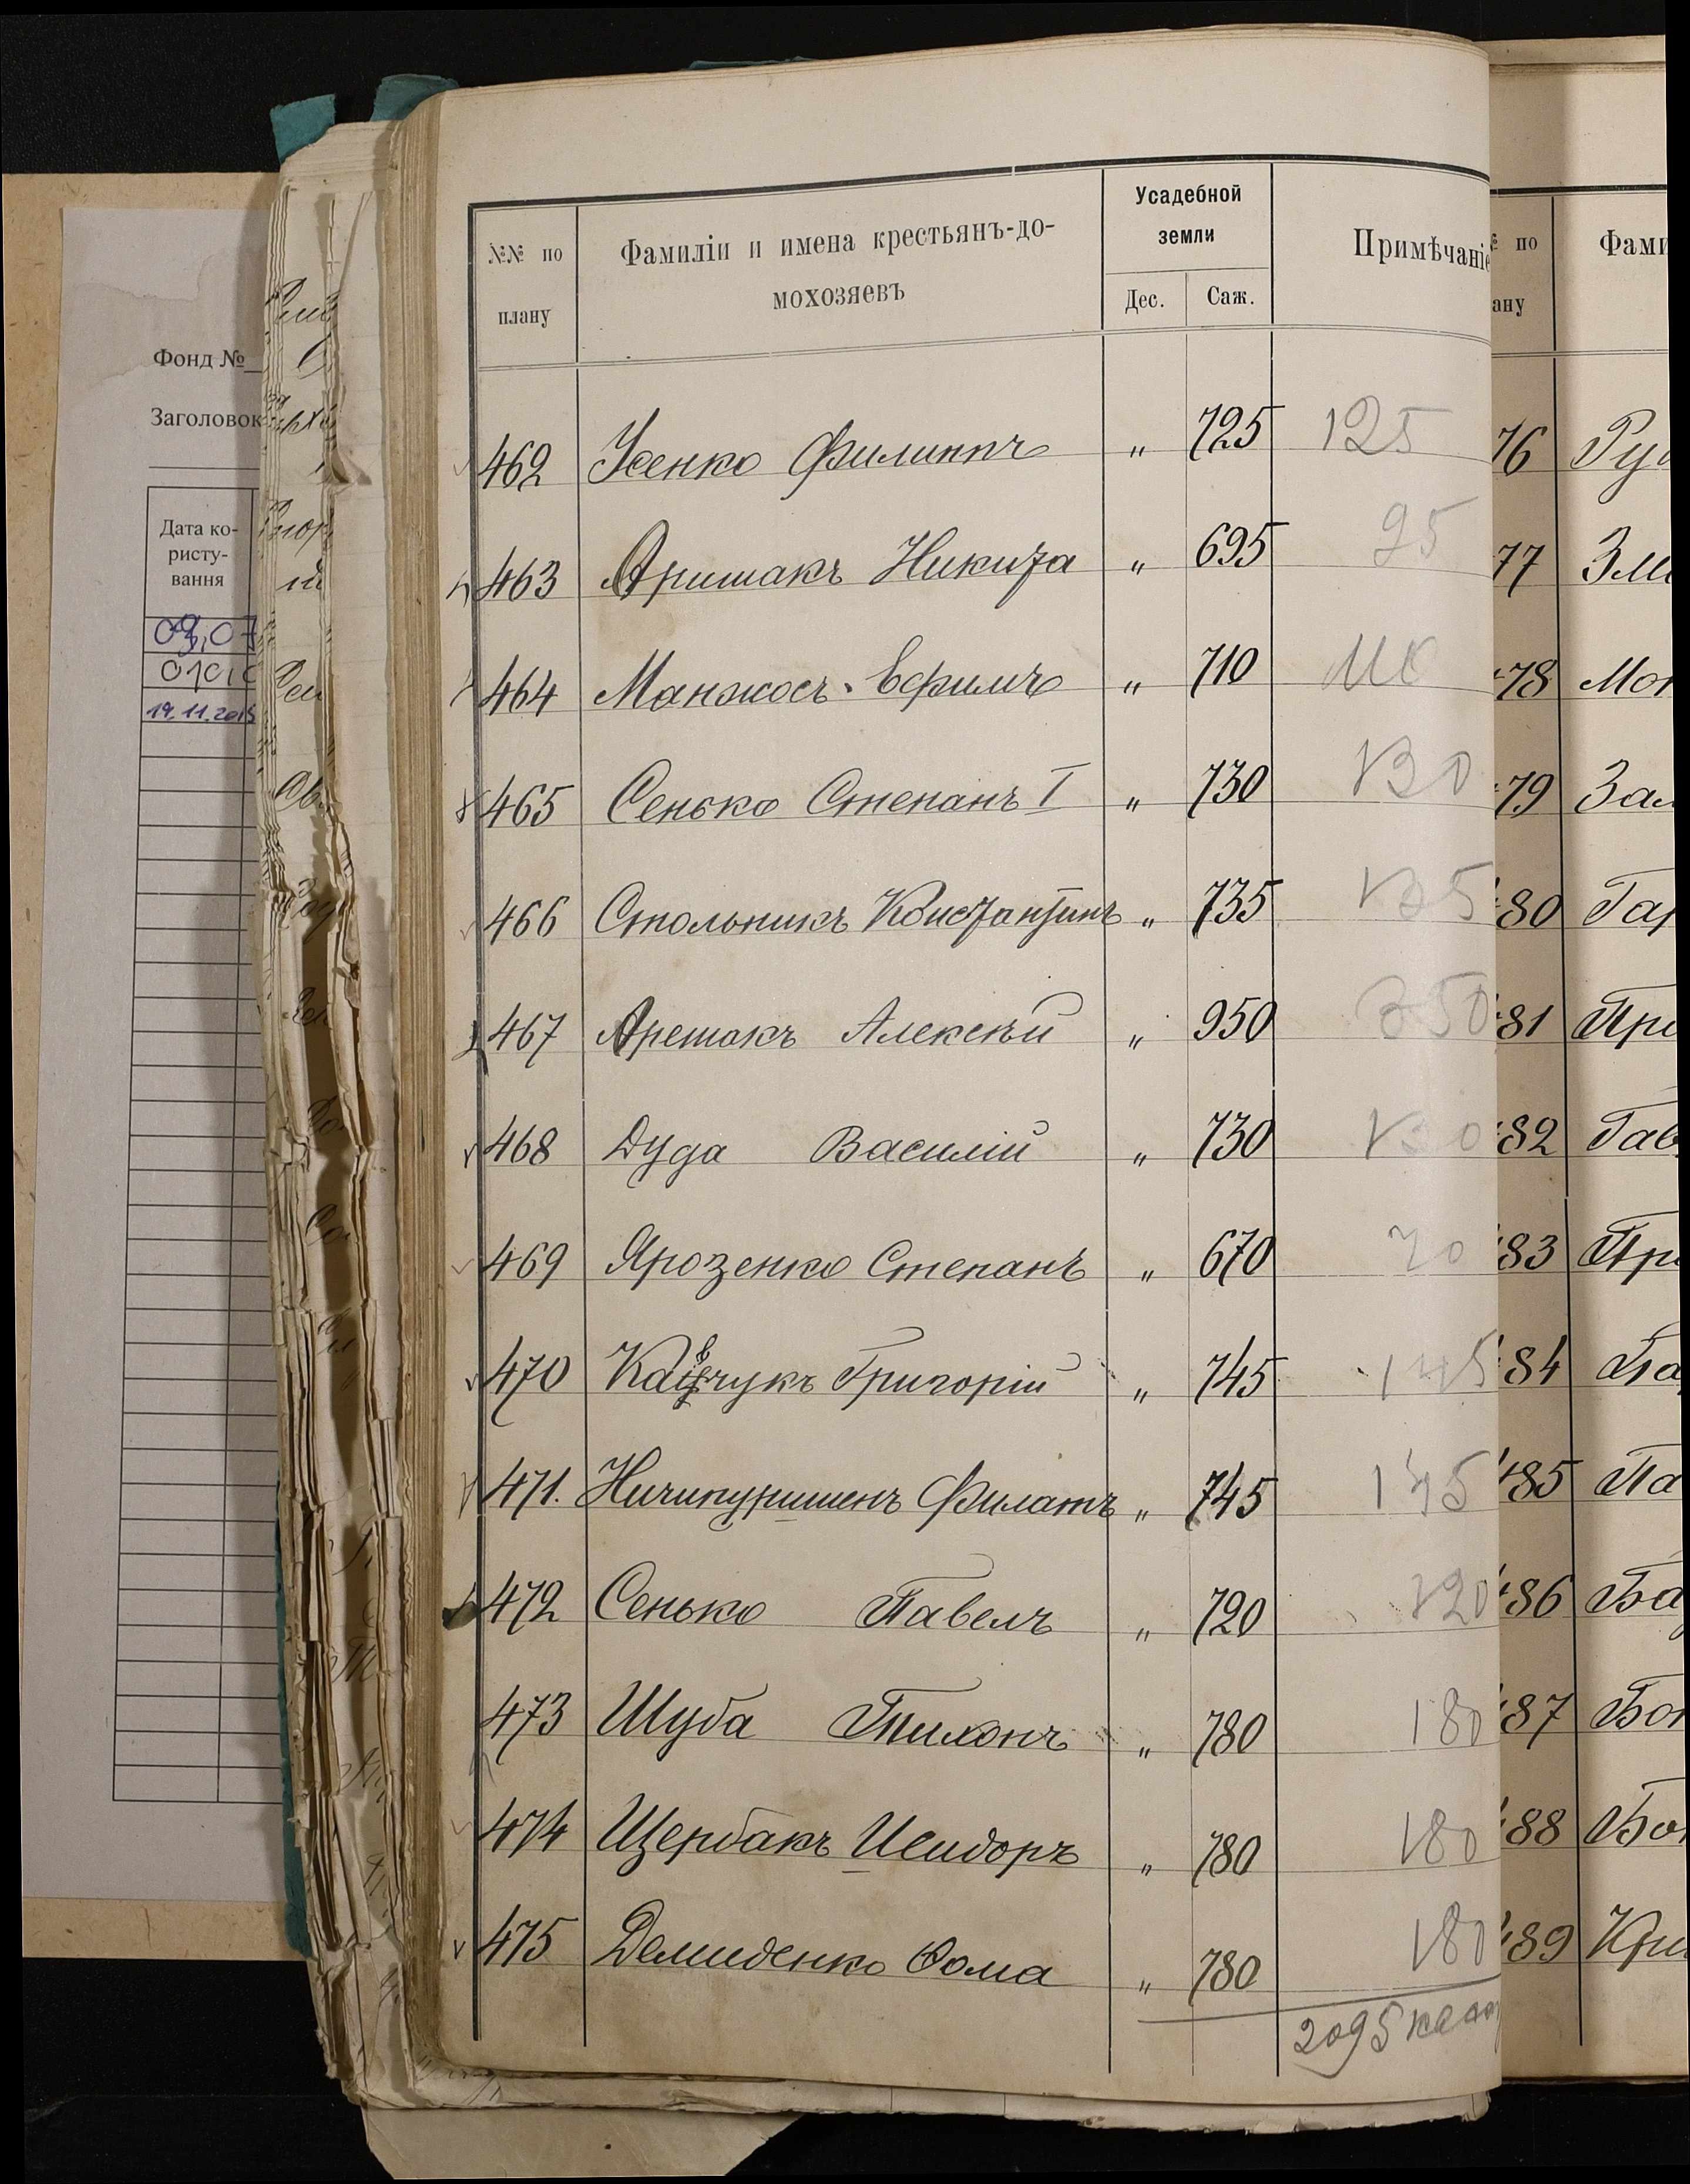 Фонд №
Заголовок
Дата ко-
ристу-
вання
19.11.2015
№№ по
плану
Фамиліи и имена крестьянъ-до-
мохозяевъ
Усадебной
земли
Дес. Саж.
Примѣчаніе
462 Усенко Филиппъ " 725 125
463 Аришакъ Никита " 695 95
464 Манжосъ Ефимъ " 710 110
465 Сенько Степанъ I " 730 130
466 Стольникъ Константинъ " 735 135
467 Арешакъ Алексѣй " 950 350
468 Дуда Василій " 730 130
469 Ярозенко Степанъ " 670 70
470 Григорій " 745 145
471. Ничипуришенъ Филатъ " 745 145
472 Сенько Павелъ " 720 120
473 Шуба Тихонъ " 780 180
474 Щербакъ Исидоръ " 780 180
475 Демиденко Ѳома " 780 180
2095
по
ану
Фами
76 Руд
77 Зми
478 Мон
479 Зал
480 Гар
481 При
482 Гав
483 При
484
485 Па
486 Ба
487 Бон
488 Бон
489 Кри